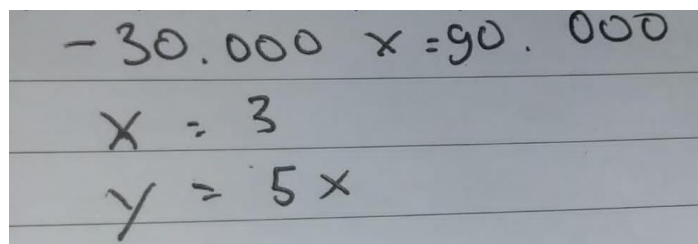 - 30.000 x = 90. 000
x = 3
y = 5x